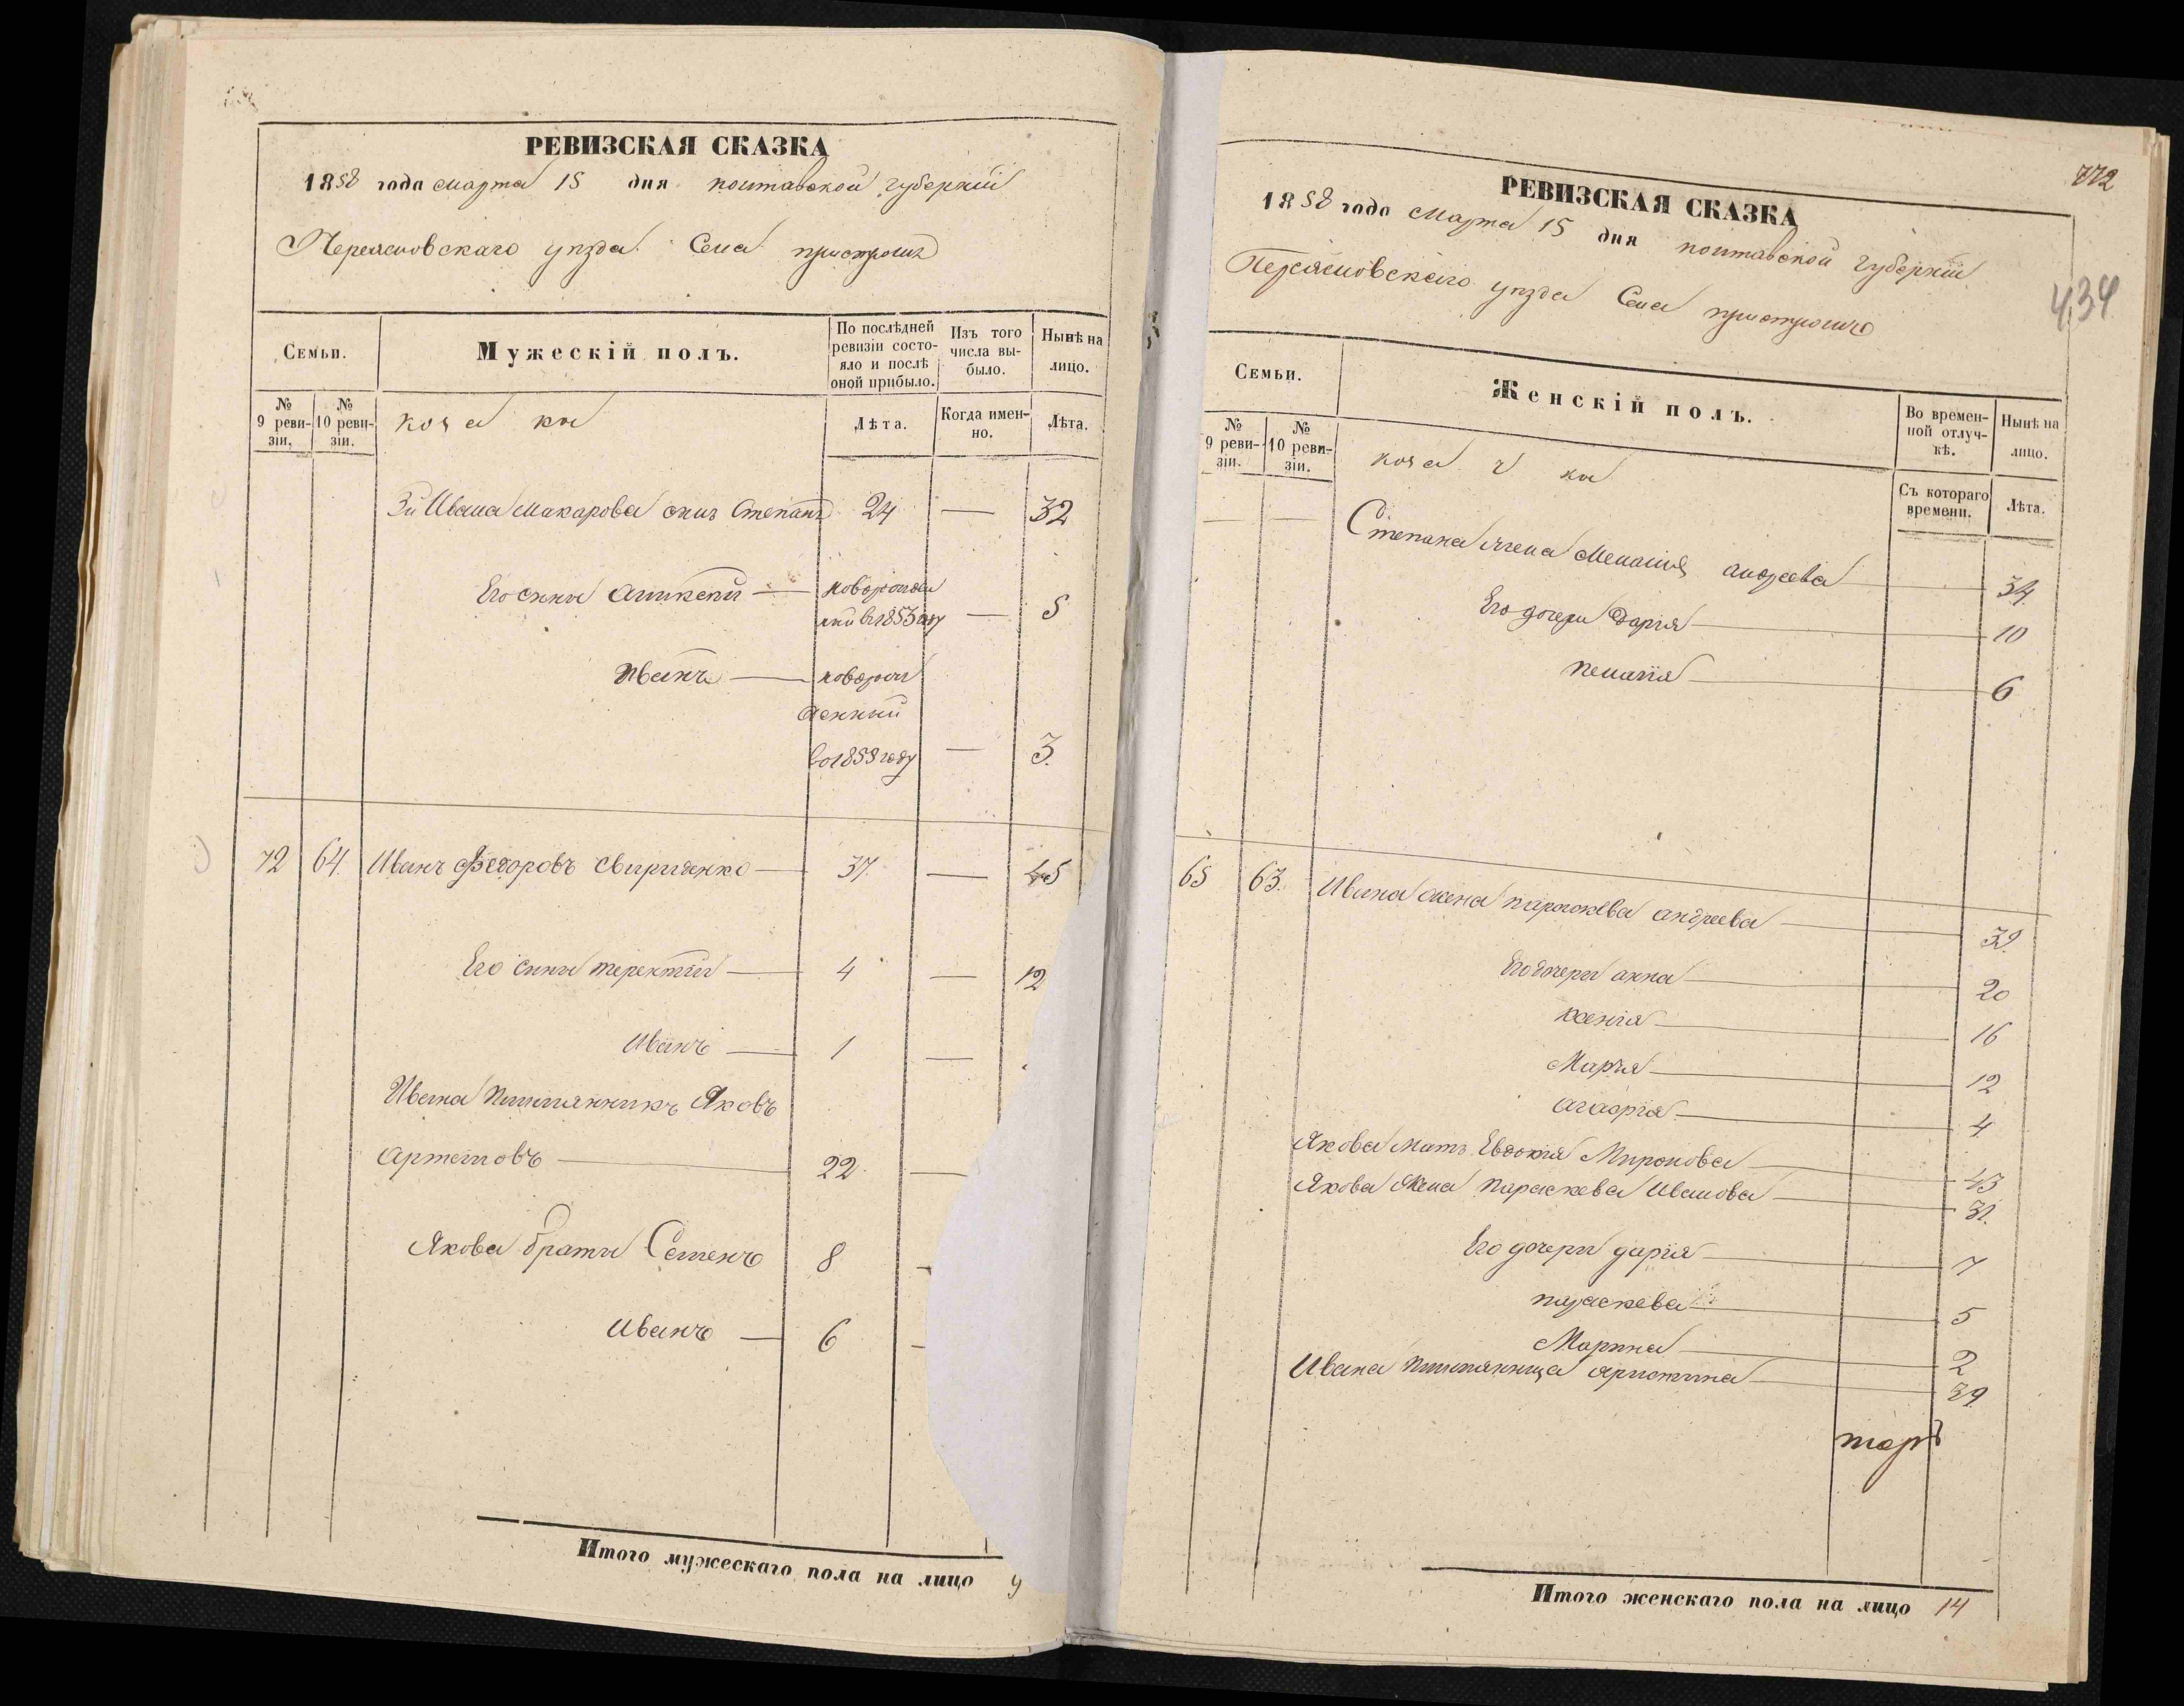 РЕВИЗСКАЯ СКАЗКА
1858 года марта 15 дня полтавской губернiи
Переясловскаго уезда Села пристромъ
Семьи.
Мужескій полъ.
По послѣдней ревизіи состояло и послѣ оной прибыло.
Изъ того числа выбыло.
Нынѣ на лицо.
№ 9 ревизіи.
№ 10 ревизіи.
коза ки
Лѣта.
Когда именно.
Лѣта.
3й Ивана Макарова сынъ Степанъ 24 — 32
Его сины
новорожден
ный въ 1853 году — 5
Иванъ — новорож
денний
— 3.
72 64. Иванъ Федоровъ Свириденко — 37. — 45
Его сини терентiй — 4 — 12
Иванъ — 1 —
Ивана племянникъ Яковъ
Артемовъ — 22. —
Якова брати Семенъ 8 -
Иванъ — 6 -
Итого мужескаго пола на лицо
772
434
РЕВИЗСКАЯ СКАЗКА
1858 года Марта 15 дня полтавской губернiи
Переясловскаго уезда Села
Семьи.
Женскій полъ.
Во временной отлучкѣ.
Нынѣ на лицо.
№ 9 ревизіи.
№ 10 ревизіи.
коза ч ки
Съ котораго времени.
Лѣта.
— — Степана жена Меланiя андреева — 34.
Его дочери Дарiя — 10
пелагiя — 6
65 63. Ивана жена параскева андреева — 39.
Его дочери анна — 20
ксенiя — 16
Марiя — 12
— 4
Якова мать Евдокiя Миронова — 43
Якова Жена параскева Иванова — 31.
Его дочери дарiя — 7
параскева — 5
Марина — 2
Ивана племянница христина — 39
Итого женскаго пола на лицо 14